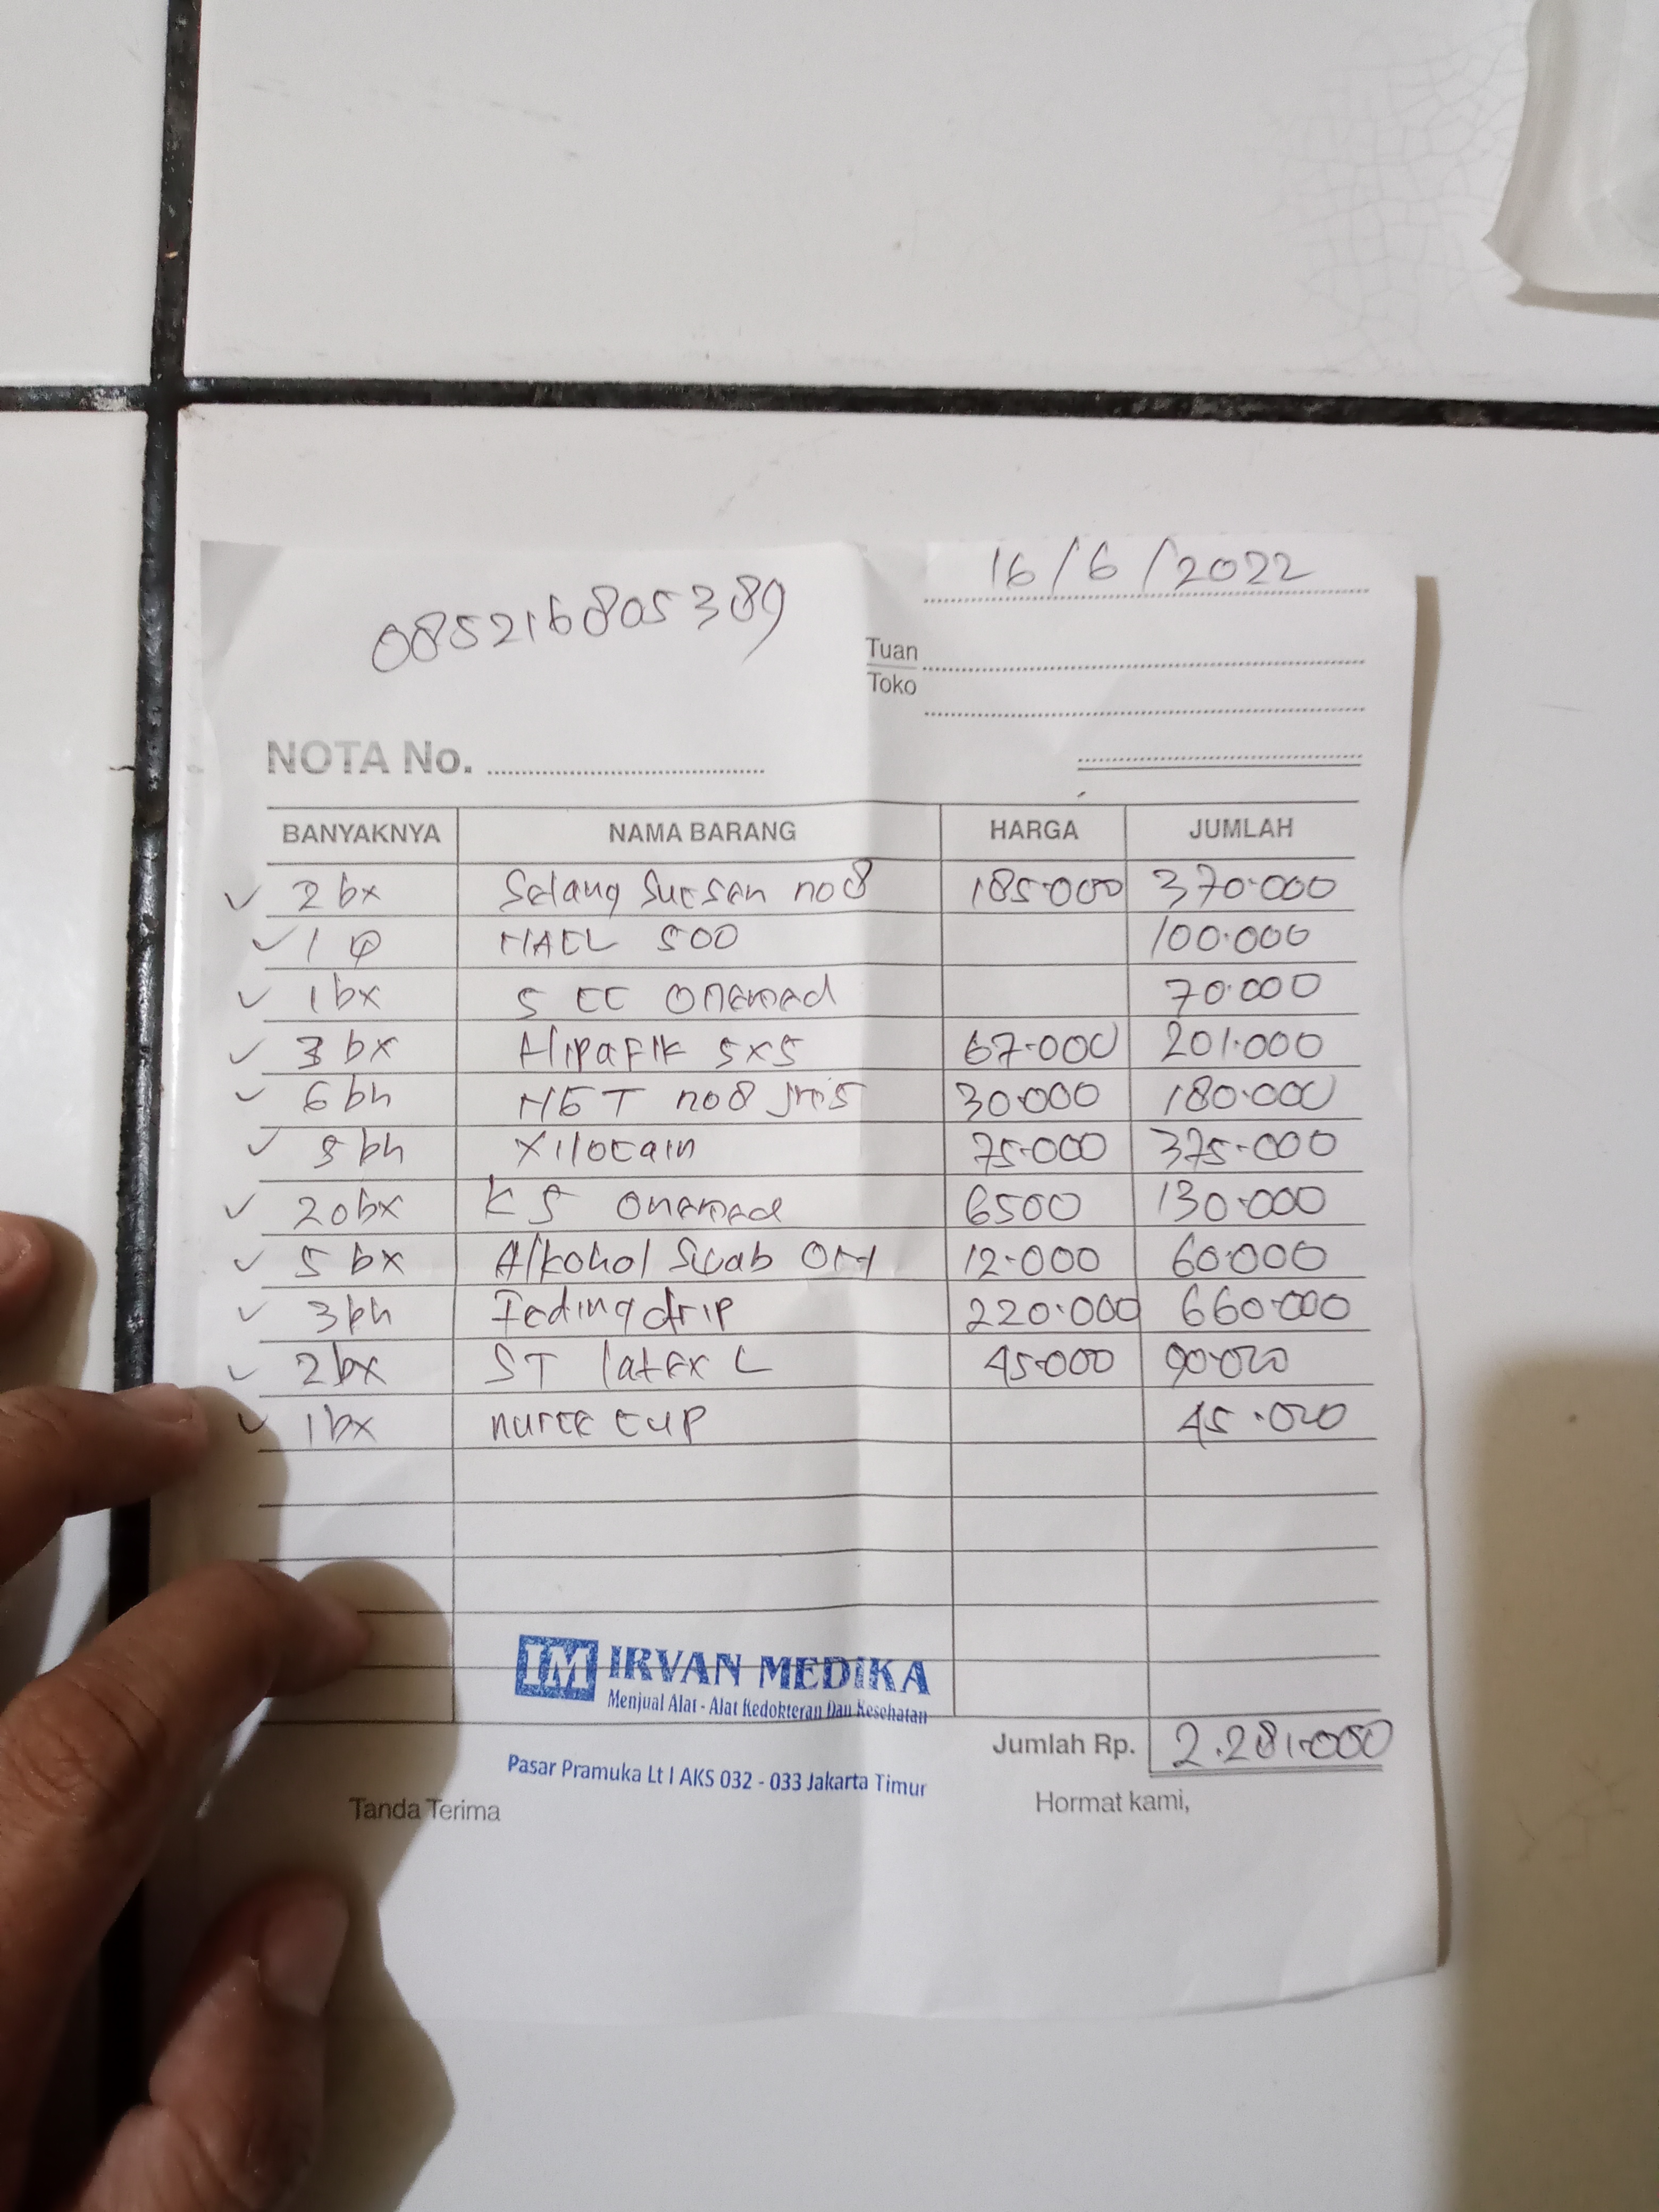 16/6/2022
085216805389
Tuan
Toko
NOTA No.
BANYAKNYA NAMA BARANG HARGA JUMLAH
2 bx Selang Sucsen no 8 185.000 370.000
1 NACL 500 100.000
1 bx 5 CC Onemed 70.000
3 bx Hipafik 5x5 67.000 201.000
6 bh NGT no 8 30.000 180.000
5 bh Xilocain 75.000 375.000
20 bx KS Onemed 6500 130.000
5 bx Alkohol Swab OM 12.000 60.000
3 bh Feding drip 220.000 660.000
2 bx ST latex L 45.000 90.000
1 bx nurce cup 45.000
IM IRVAN MEDIKA
Menjual Alat - Alat Kedokteran Dan Kesehatan
Jumlah Rp. 2.281.000
Pasar Pramuka Lt I AKS 032 - 033 Jakarta Timur
Tanda Terima Hormat kami,